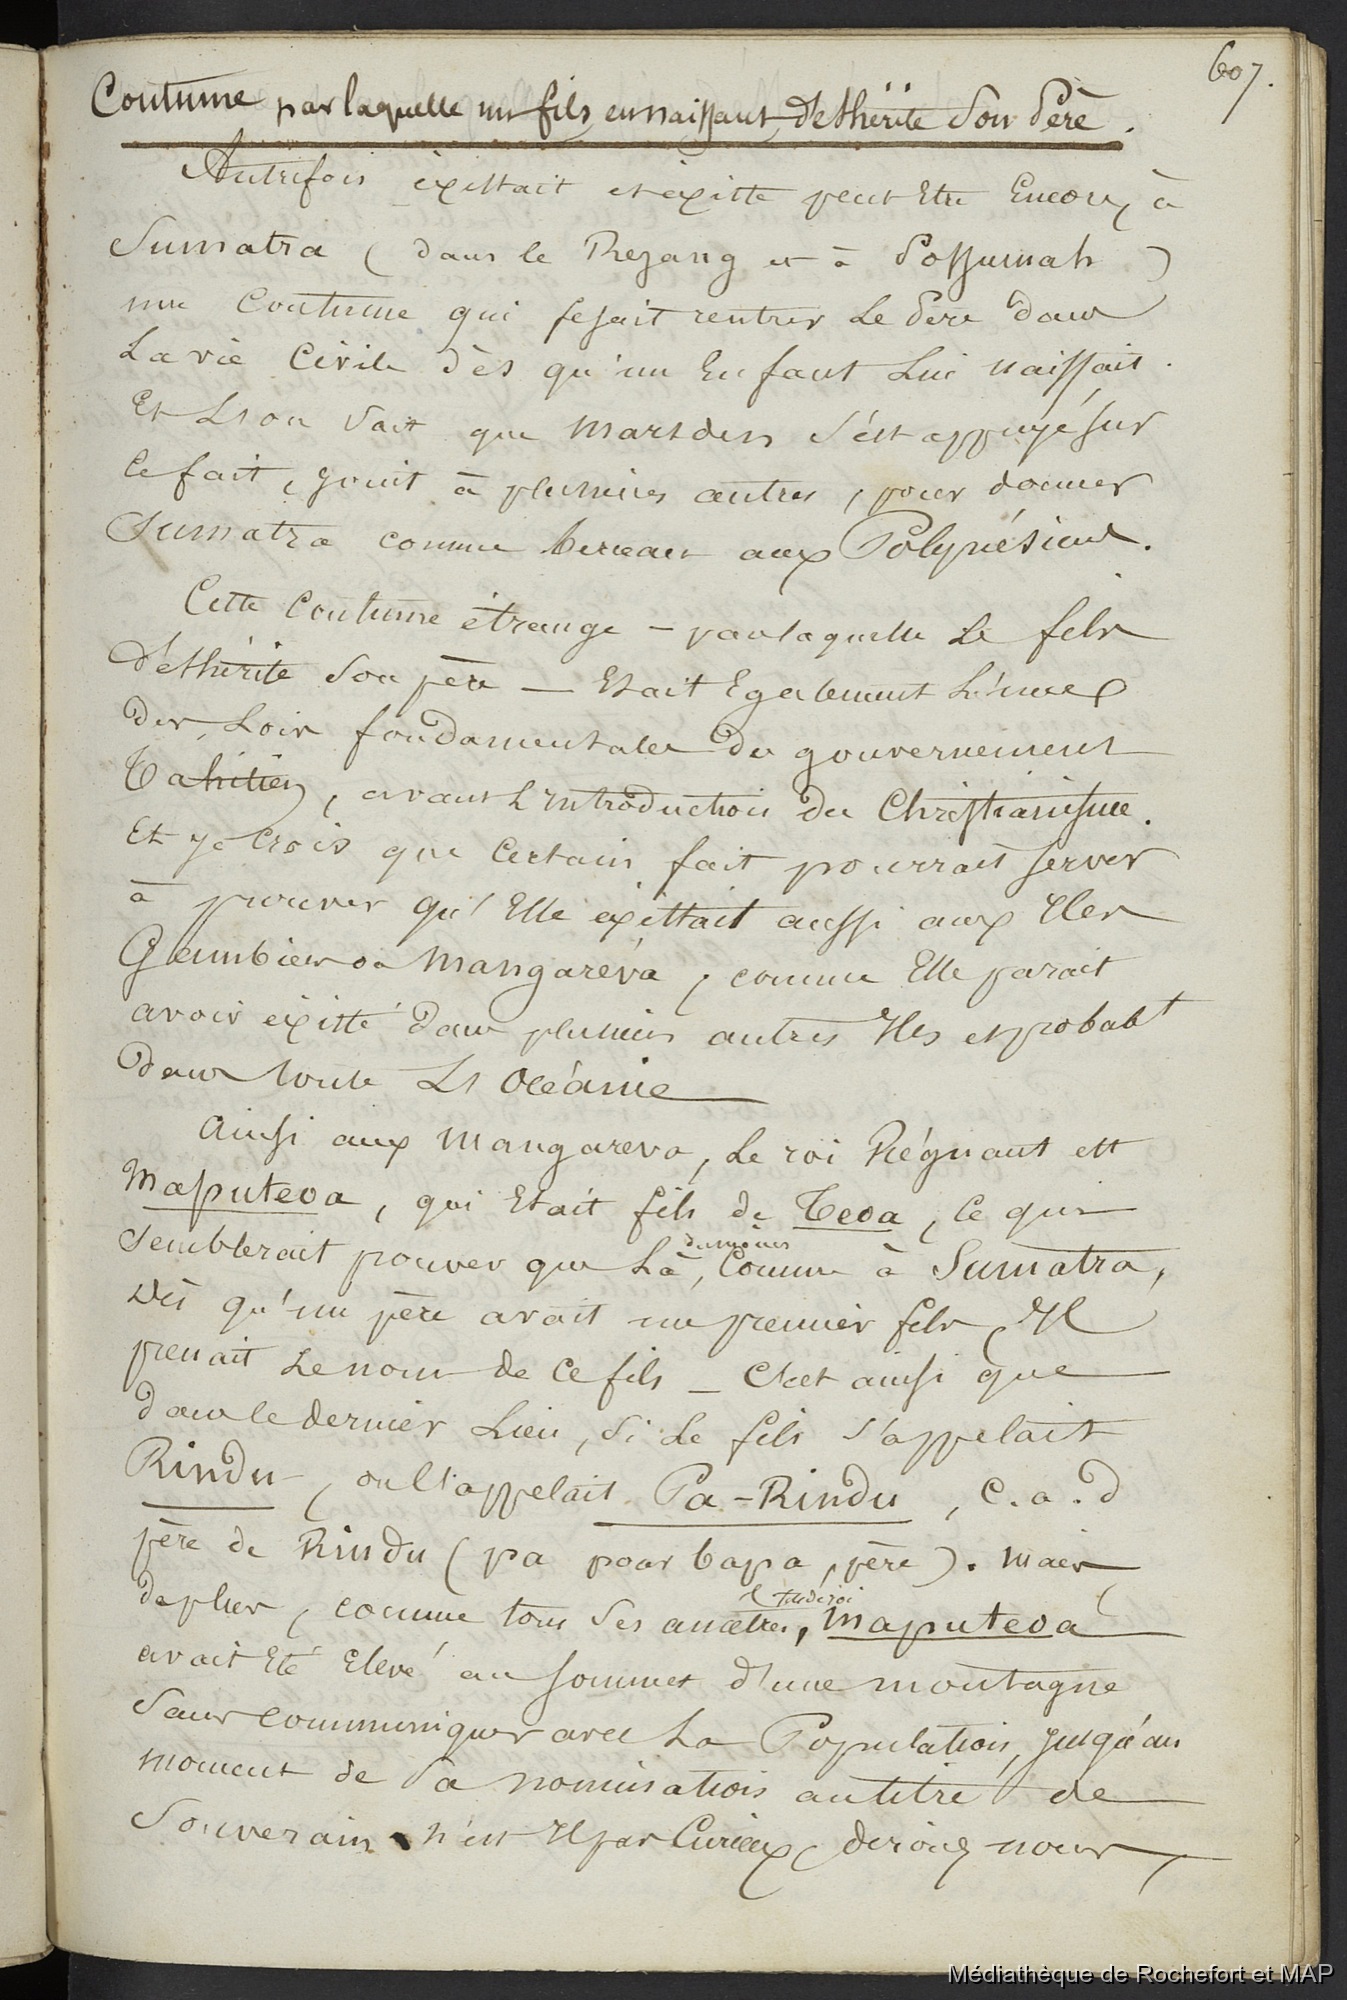 607.
Coutume par laquelle un fils, en naissant, déshérite son Père.
Autrefois existait et existe peut Etre Encore, à
Sumatra (dans le Rejang et à Passumah)
une Coutume qui fesait rentrer Le Père dans
La vie Civile dès qu'un Enfant Lui naissait.
Et L'on Sait que Marsden s'est appuyé sur
ce fait, joint à plusieurs autres, pour donner
Sumatra comme berceau aux Polynésiens.
Cette Coutume étrange – par laquelle Le fils
déshérite Son père — Etait Egalement L'une
des Lois fondamentales du gouvernement
Tahitien, avant L'introduction du Christianisme.
Et je Crois que Certain fait pourrait servir
à prouver qu'Elle existait aussi aux Iles
Gambier ou Mangaréva, comme Elle parait
avoir existé dans plusieurs autres Iles et probabt
dans toute L'Océanie —
Ainsi aux Mangareva, Le roi Régnant est
Maputeoa, qui Etait fils de Teoa, Ce qui
Semblerait prouver que Là, du moins, Comme à Sumatra,
Dès qu'un père avait un premier fils, Il
prenait Le nom de Ce fils – C'est ainsi que
dans le dernier Lieu, Si Le fils s'appelait
Rindu, on L'appelait Pa-Rindu, C.a.d
père de Rindu (pa pour bapa, père). Mais
de plus, comme tous Ses ancêtres, Maputeoa
avait Eté Elevé au sommet d'une montagne
Sans communiquer avec La Population, jusqu'au
moment de Sa nomination au titre de
Souverain. N'est Il pas Curieux, dirons nous,
Médiathèque de Rochefort et MAP